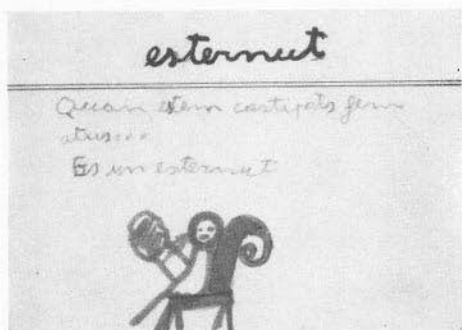 esternut
Quan estem costipats fem
Es un esternut